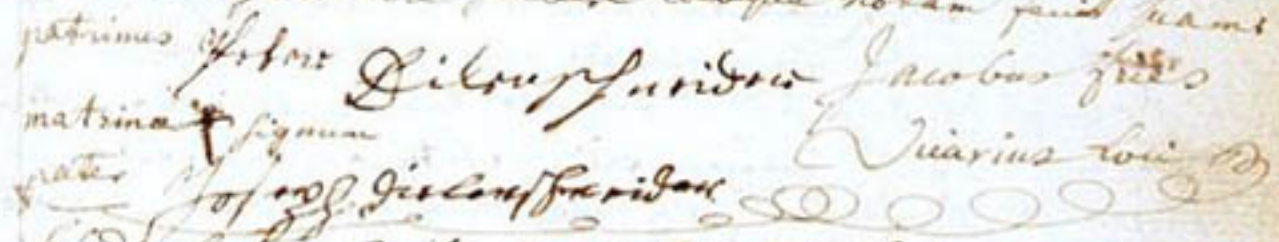 notam fecit suam
patrinus Peter Dilenschneider Jacobus
matrinae signum Vicarius loci
pater Joseph Dielenschneider